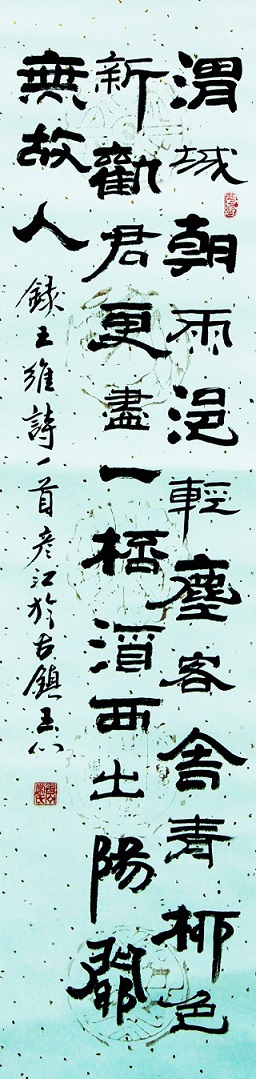 渭城朝雨浥輕塵客舍青柳色
新勸君更盡一桮酒西出陽關
無故人
録王維詩一首彦江於古鎮